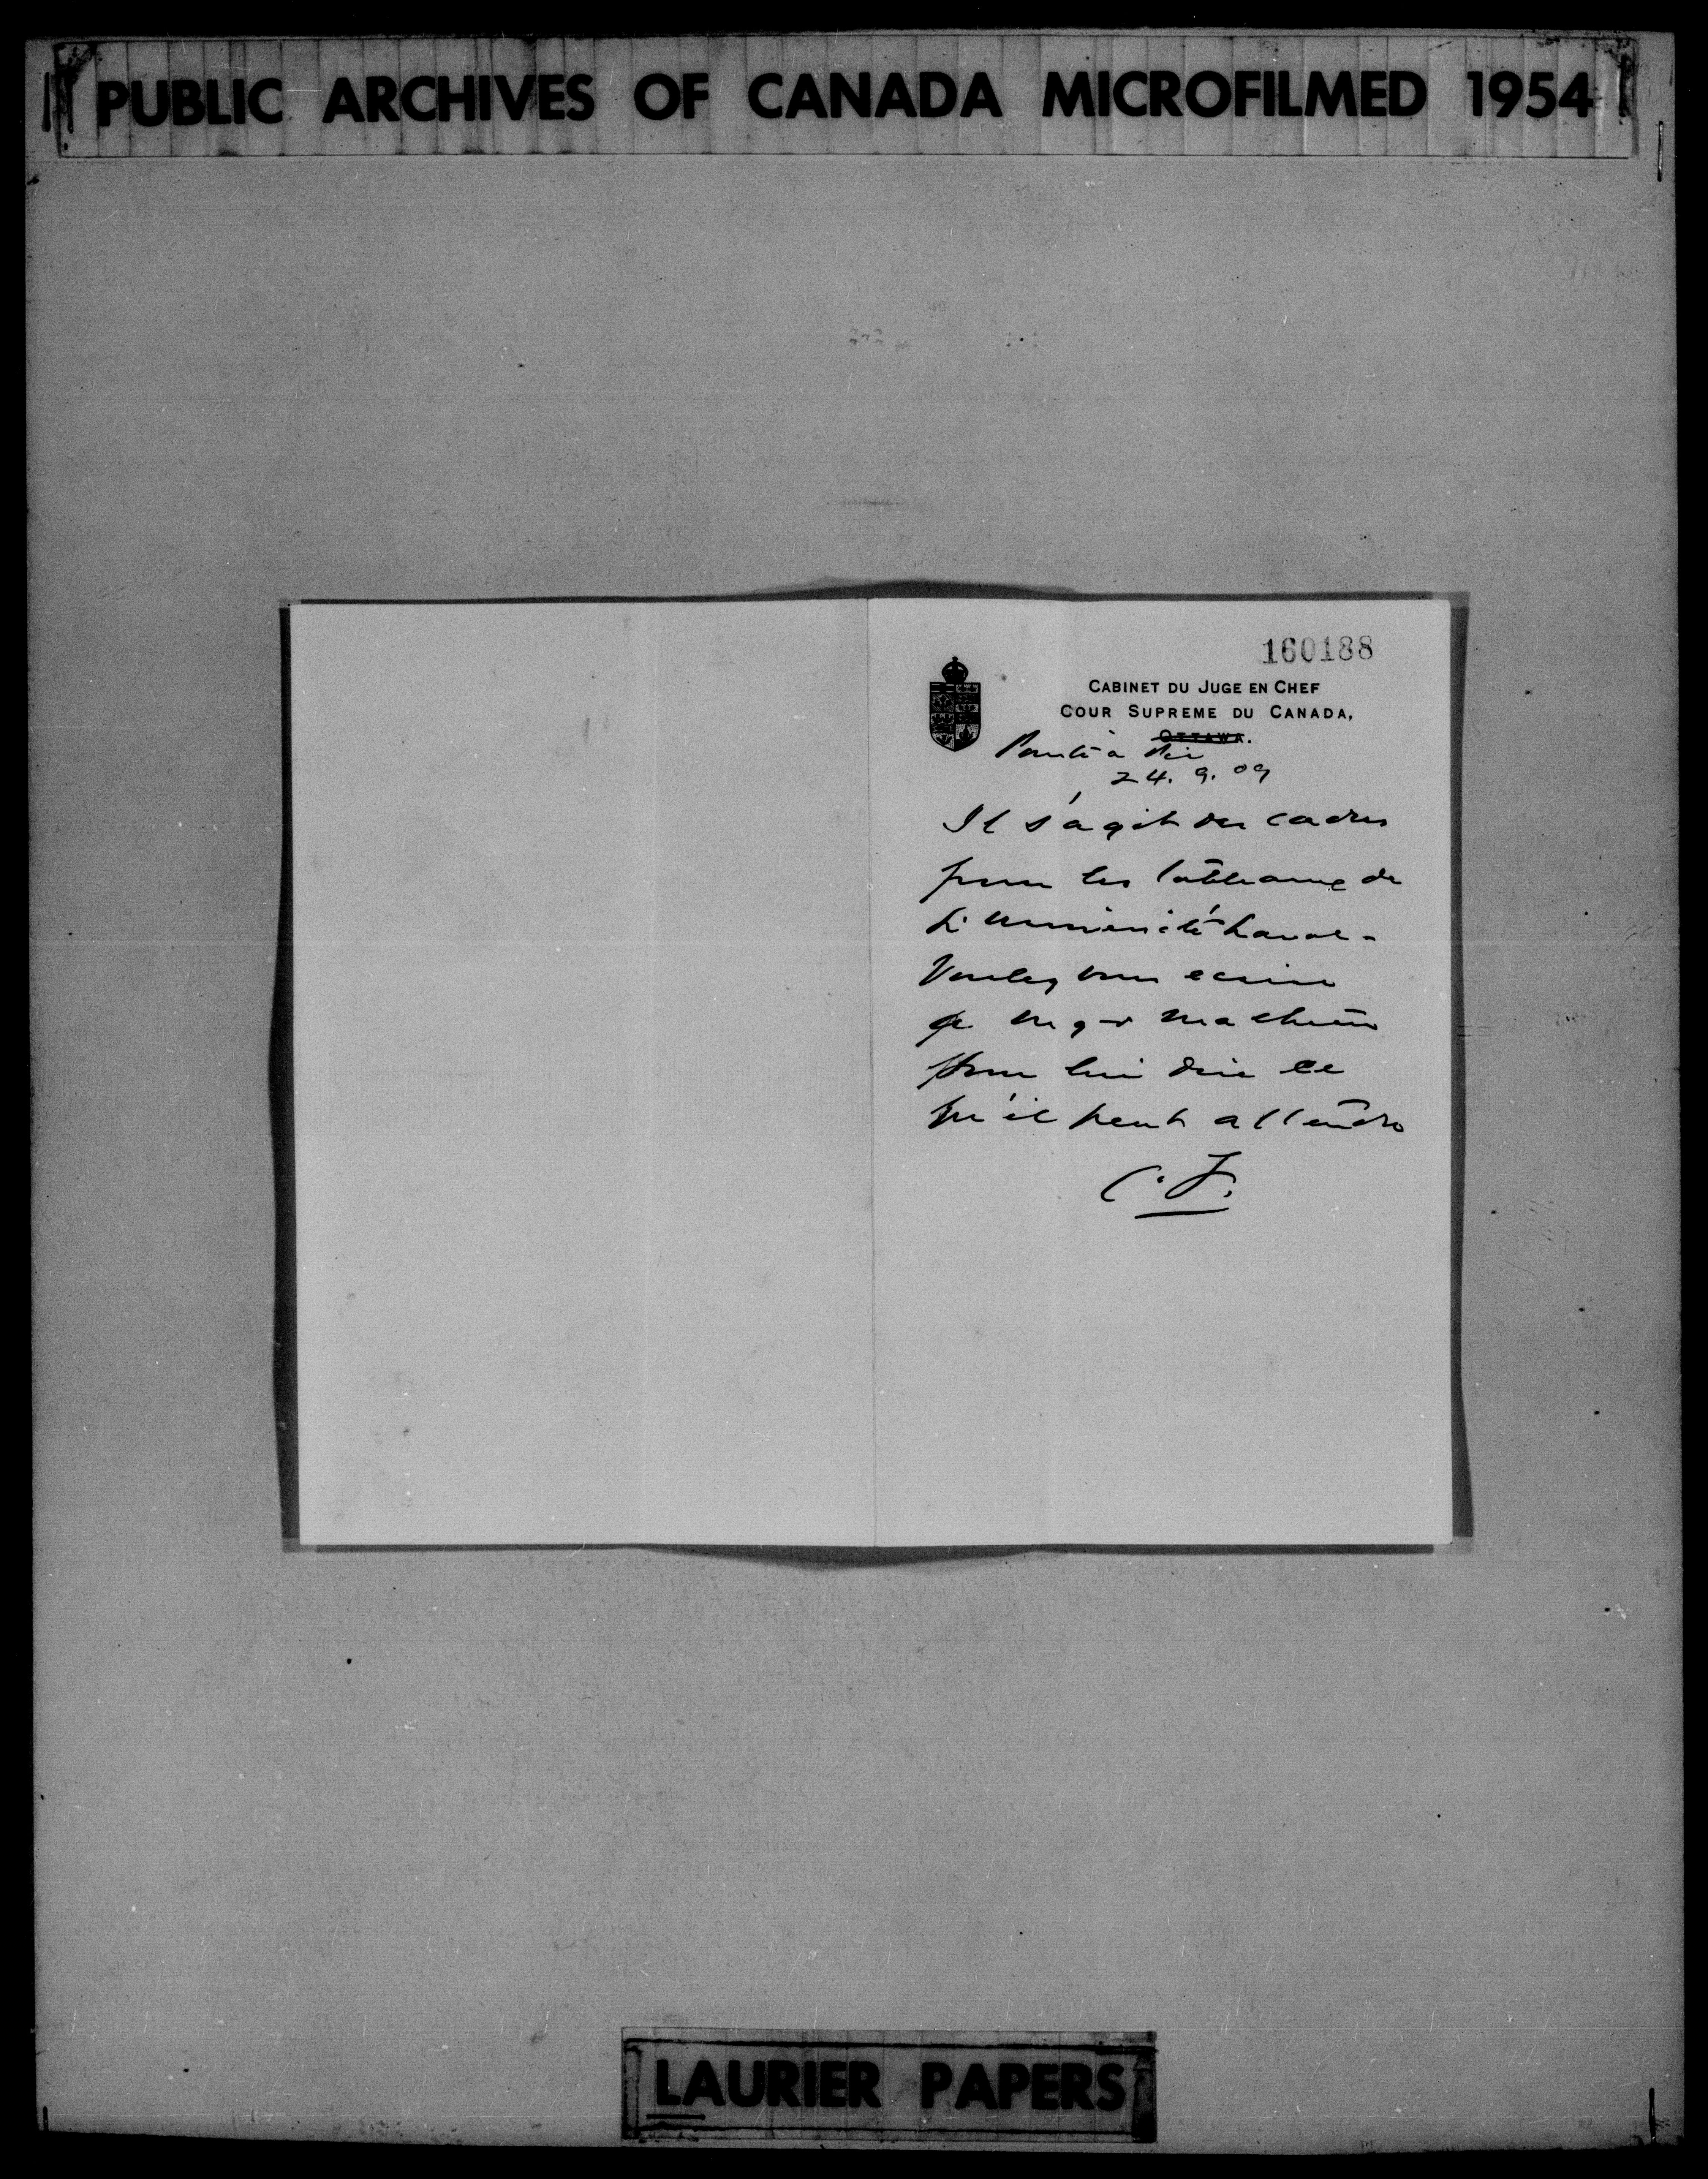 PUBLIC ARCHIVES OF CANADA MICROFILMED 1954
160188
CABINET DU JUGE EN CHEF
COUR SUPREME DU CANADA,
OTTAWA.
Pointe à Pic
24. 9. 09
Il s'agit des cadres
pour les tableaux de
L'université Laval -
Voulez vous ecrire
a Mgr Mathieu
pour lui dire ce
qu'il peut attendre
C. F.
LAURIER PAPERS